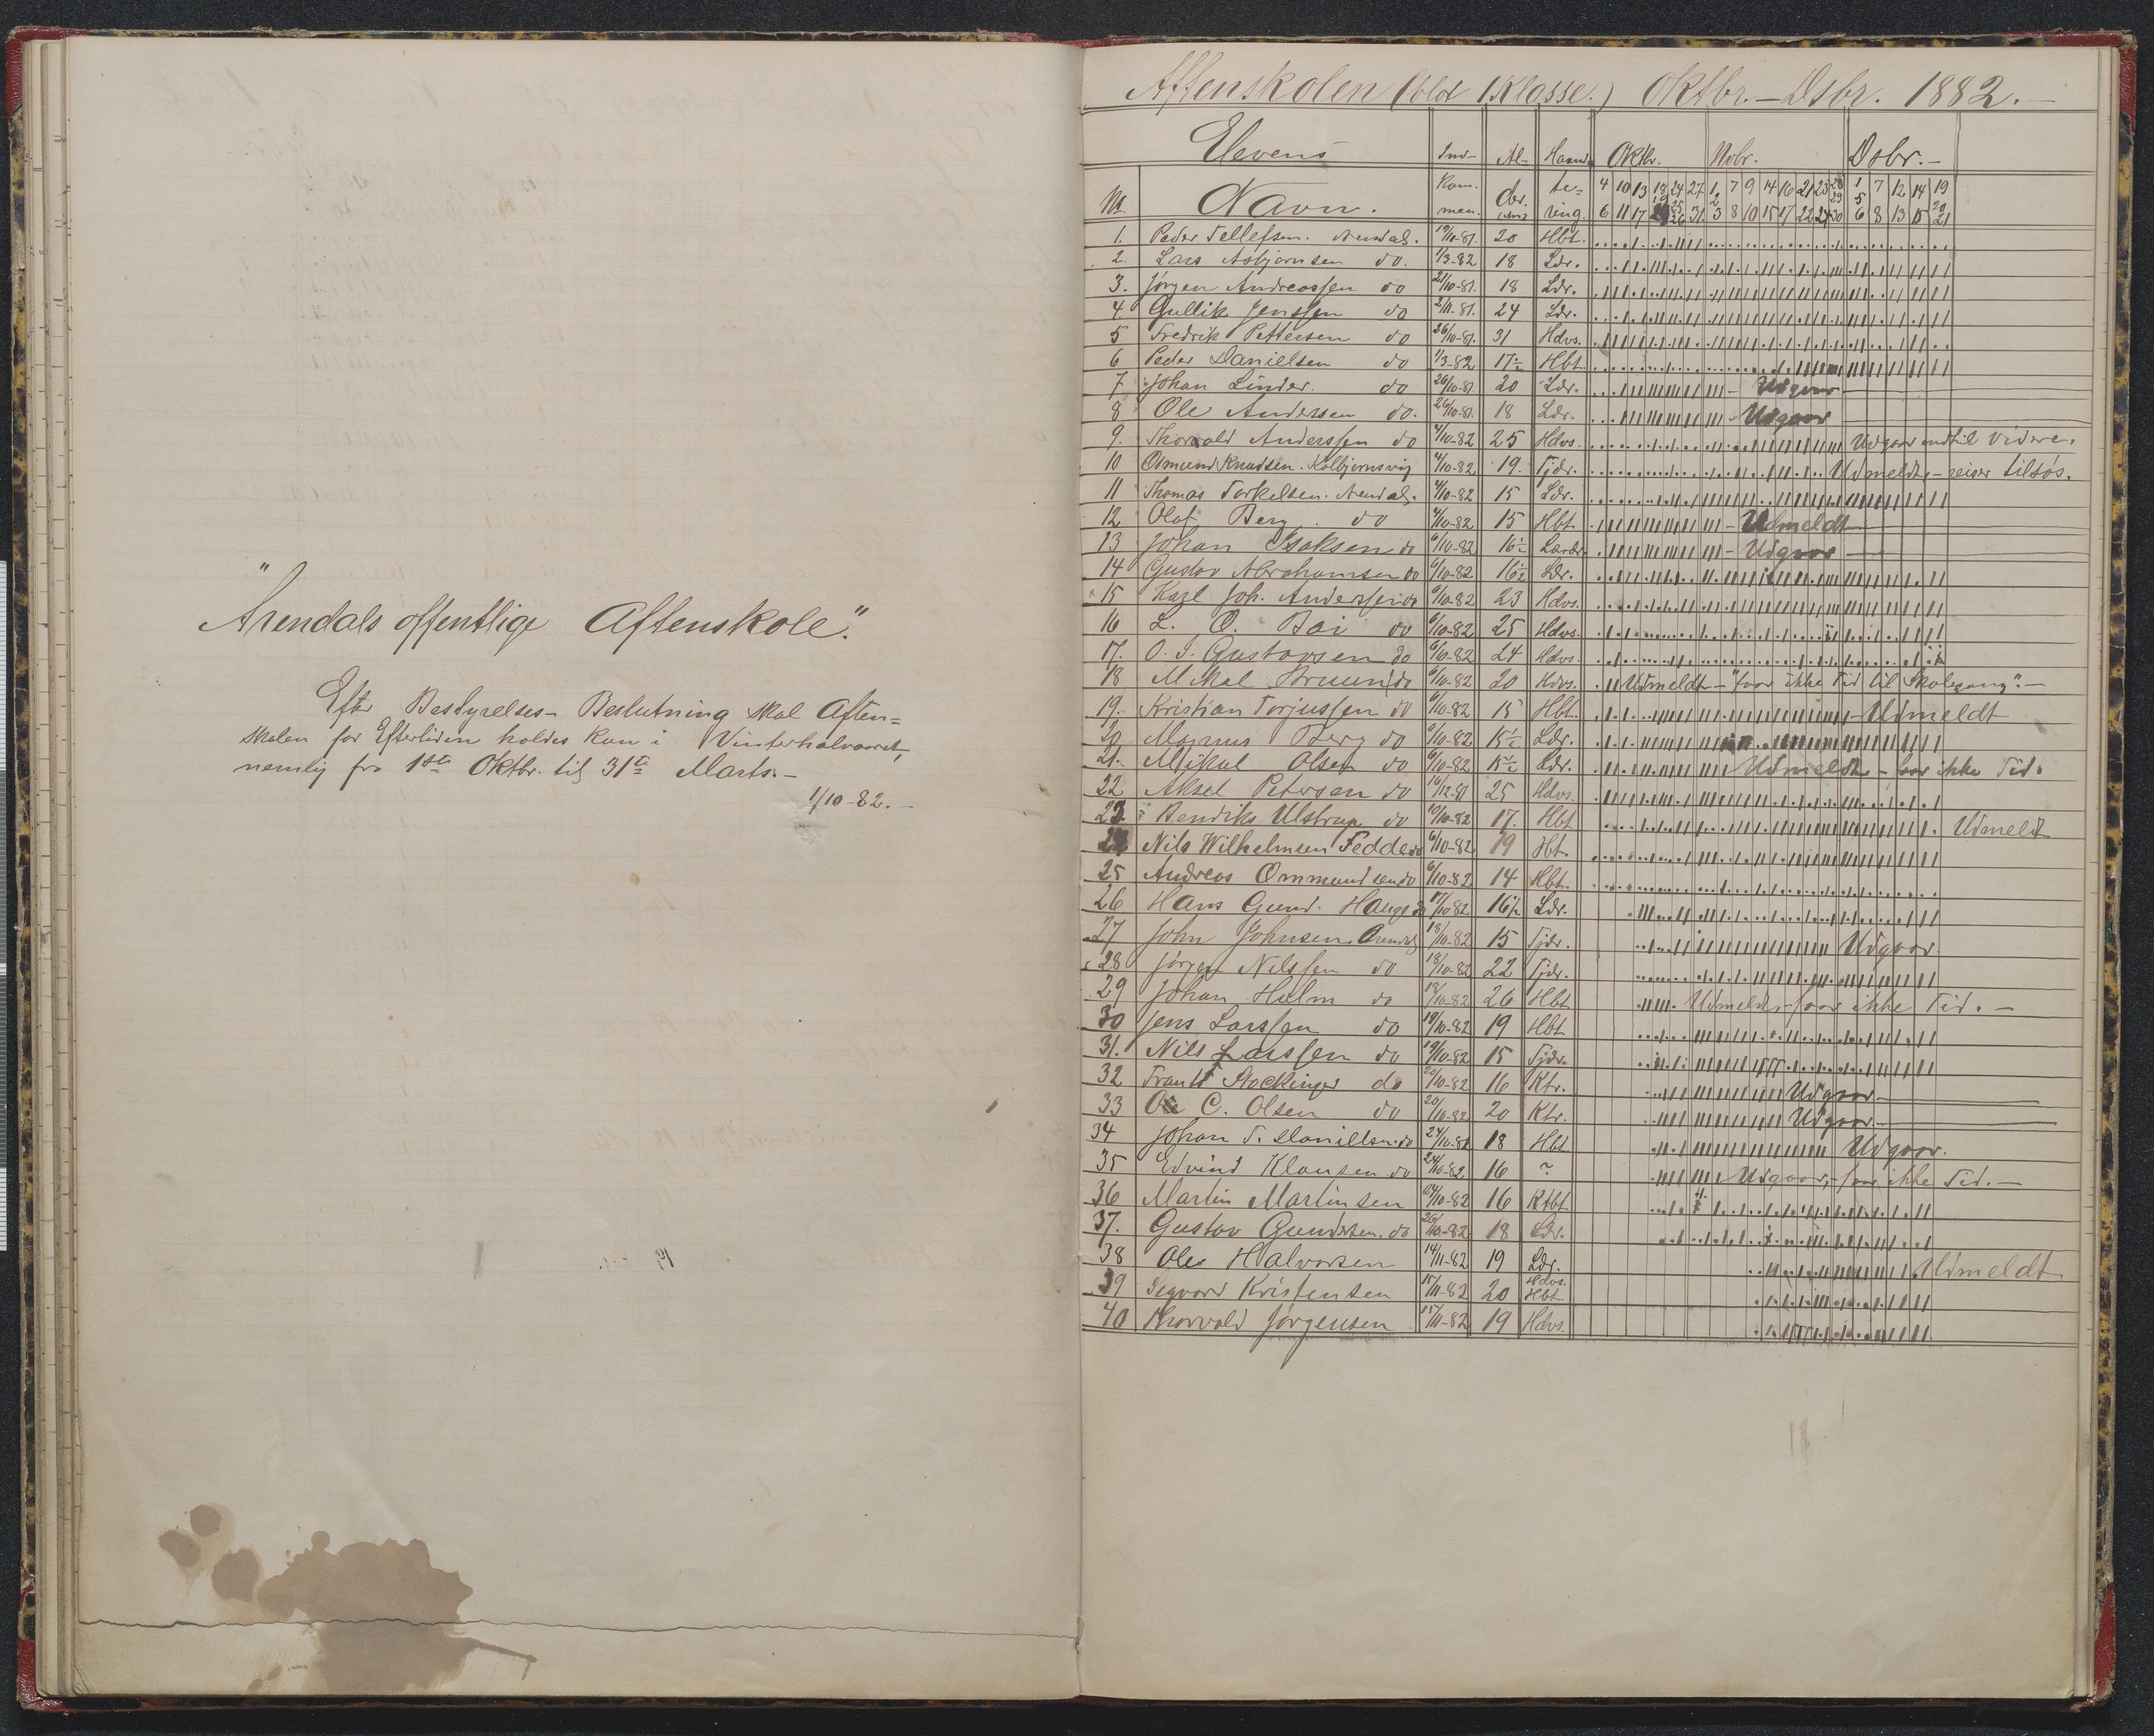 "Arendals offentlige Aftenskole".
Efter Bestyrelses- Beslutning skal Aften=
skolen for Eftertiden holdes kun i Vinterhalvaaret,
nemlig fra 1ste Oktbr. til 31te Marts.-
1/10-82.-
Aftenskolen (blot 1 Klasse.) Oktbr.-Dsbr. 1882.-
Elevens Ind- Al- Haand- Oktbr. Nvbr. Dsbr.-
No. Navn. kom- der. te- 4 10 13 18 24 27 1 7 9 14 16 21 23 28 1 7 12 14 19
men. (Aar) ring. 6 11 17 31 3 8 10 15 17 22 24 30 6 8 13 15 21
1. Peder Tellefsen. Arendal. 19/10-81. 20 Hbt.
2. Lars Asbjørnsen do. 1/3-82 18 Ldr.
3. Jørgen Andreassen do 21/10-81. 18 Ldr.
4. Gullik Jenssen do 2/11-81. 24 Ldr.
5 Fredrik Pettersen do 26/10-81. 31 Hdvs.
6 Peder Danielsen do 1/3-82 17½ Hbt.
7 Johan Linder. do 26/10-81. 20 Ldr. Udgaar
8 Ole Andersen do. 26/10-81. 18 Ldr. Udgaar
9. Thorvald Anderssen do 4/10-82 25 Hdvs. Udgaar indtil videre.
10 Osmund Knudsen. Kolbjørnsvig 4/10-82 19. Tjdr. Udmeldt,- reiser tilsøs.
11 Thomas Torkelsen. Arendal. 4/10-82 15 Ldr.
12 Olaf Berg. do 4/10-82 15 Hbt. Udmeldt
13 Johan Isaksen do 6/10-82 16½ Udgaar
14 Gustav Abrahamsen do 6/10-82 16½ Ldr.
15 Karl Joh. Anderssen do 6/10-82 23 Hdvs.
16 L. O. Boi do 6/10-82 25 Hdvs.
17. O. J. Gustavsen do 6/10-82 24 Hdvs.
18 Mikal Bruun do 6/10-82 20 Hdvs. Udmeldt - "faar ikke Tid til Skolegang".-
19. Kristian Torjussen do 6/10-82 15 Hbt. Udmeldt
20 Magnus Berg do 6/10-82 15½ Ldr.
21. Mikal Olsen do 6/10-82 15½ Ldr. Udmeldt,- faar ikke Tid.
22 Aksel Petersen do 16/12-81 25 Hdvs.
23. Bendiks Ulstrup do 10/10-82 17. Hbt Udmeldt
24 Nils Wilhelmsen Fedde do 6/10-82 19 Hbt.
25 Andreas Ommundsen do 6/10-82 14 Hbt.
26 Hans Gund. Hauge do 17/10-82 16½ Ldr.
27 John Johnsen. Arendal 18/10-82 15 Tjdr. Udgaar.
28 Jørgen Nilssen do 18/10-82 22 Tjdr.
29 Johan Holm do 18/10-82 26 Hbt. Udmeldt,- faar ikke Tid.-
30 Jens Larssen do 19/10-82 19 Hbt
31. Nils Larssen do 19/10-82 15 Tjdr.
32 Frants Stockinger do 20/10-82 16 Ktr. Udgaar
33 Ole C. Olsen do 20/10-82 20 Ktr. Udgaar
34 Johan T. Danielsen. do 24/10-82 18 Hbt Udgaar.
35 Edvind Klausen do 24/10-82. 16 ? Udgaar,- faar ikke Tid.-
36 Martin Martinsen 24/10-82 16 Ktbt.
37. Gustav Gundersen. do 26/10-82 18 Ldr.
38 Ole Halvorsen 14/11-82 19 Ldr. Udmeldt
39 Segvard Kristensen 15/11-82 20 Hdvs. Hbt.
40 Thorvald Jørgensen 15/11-82 19 Hdvs.